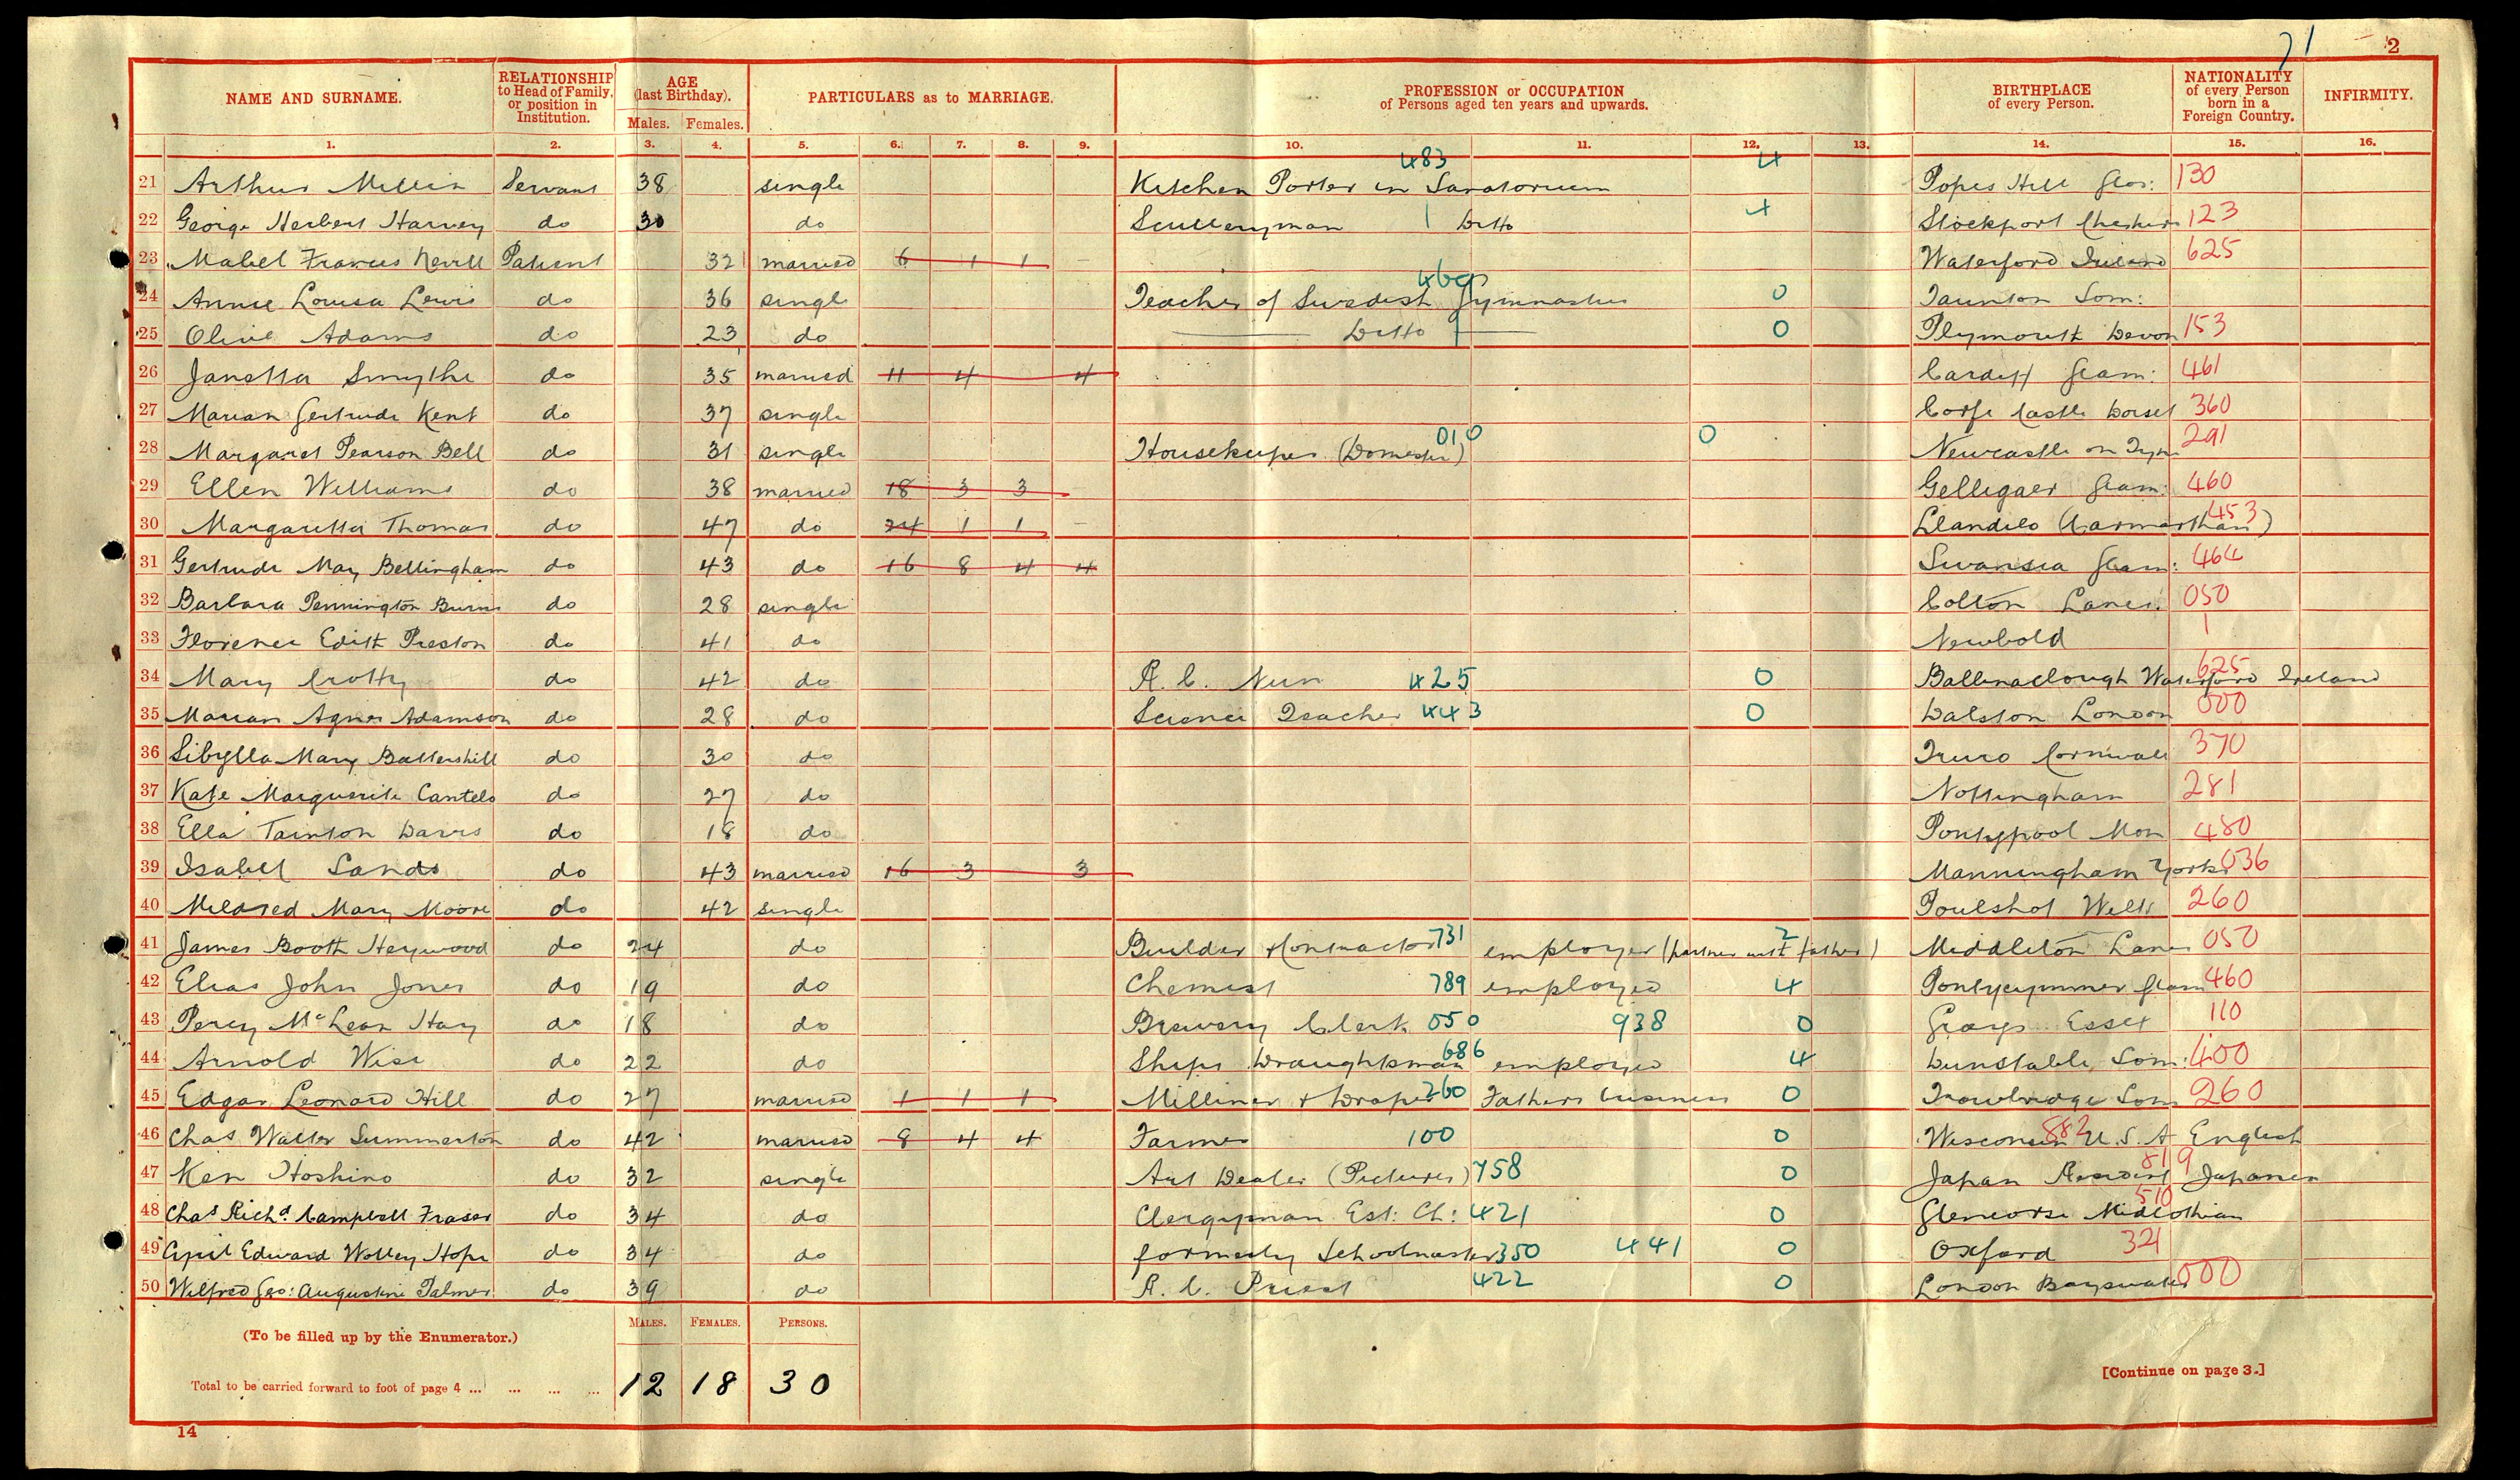 71 2
NAME AND SURNAME. RELATIONSHIP to Head of Family, or position in Institution. AGE (last Birthday). Males. Females. PARTICULARS as to MARRIAGE. PROFESSION or OCCUPATION of Persons aged ten years and upwards. BIRTHPLACE of every Person. NATIONALITY of every Person born in a Foreign Country. INFIRMITY.
1. 2. 3. 4. 5. 6. 7. 8. 9. 10. 11. 12. 13. 14. 15. 16.
21 Arthur Millin Servant 38 single Kitchen Porter in Sanatorium 483 4 Popes Hill Glos: 130
22 George Herbert Harvey do 30 do Sculleryman | Ditto 4 Stockport Cheshire 123
23 Mabel Frances Nevill Patient 32 married 6 1 1 – Waterford Ireland 625
24 Annie Louisa Lewis do 36 single Teacher of Swedish Gymnastics 469 0 Taunton Som:
25 Olive Adams do 23 do Ditto 0 Plymouth Devon 153
26 Janetta Smythe do 35 married 11 4 4 Cardiff Glam: 461
27 Marian Gertrude Kent do 37 single Corfe Castle Dorset 360
28 Margaret Pearson Bell do 31 single Housekeeper (Domestic) 010 0 Newcastle on Tyne 291
29 Ellen Williams do 38 married 18 3 3 – Gelligaer Glam: 460
30 Margaretta Thomas do 47 do 24 1 1 – Llandilo (Carmarthan) 453
31 Gertrude May Bellingham do 43 do 16 8 4 4 Swansea Glam: 464
32 Barbara Pennington Burns do 28 single Colton Lancs: 050
33 Florence Edith Preston do 41 do Newbold |
34 Mary Crotty do 42 do R. C. Nun 425 0 Ballinaclough Waterford Ireland 625
35 Marian Agnes Adamson do 28 do Science Teacher 443 0 Dalston London 000
36 Sibylla Mary Battershill do 30 do Truro Cornwall 370
37 Kate Marguerite Cantelo do 27 do Nottingham 281
38 Ella Tainton Davis do 18 do Pontypool Mon 480
39 Isabel Sands do 43 married 16 3 3 Manningham Yorks 036
40 Mildred Mary Moore do 42 single Poulshot Wilts 260
41 James Booth Heywood do 24 do Builder & Contractor 731 employer (partner with father) 2 Middleton Lancs 050
42 Elias John Jones do 19 do Chemist 789 employed 4 Pontycymmer Glam 460
43 Percy McLean Hay do 18 do Brewery Clerk 050 938 0 Grays Essex 110
44 Arnold Wise do 22 do Ships Draughtsman 686 employed 4 Dunstable Som: 400
45 Edgar Leonard Hill do 27 married 1 1 1 Milliner & Draper 260 Fathers business 0 Trowbridge Som 260
46 Chas Walter Summerton do 42 married 8 4 4 Farmer 100 0 Wisconsin U.S.A English 882
47 Ken Hoshino do 32 single Art Dealer (Pictures) 758 0 Japan Resident Japanese 819
48 Chas Richd. Campbell Fraser do 34 do Clergyman Est: Ch: 421 0 Glencorse Midlothian 510
49 Cyril Edward Wolley Hope do 34 do formerly Schoolmaster 350 441 0 Oxford 321
50 Wilfred Geo: Augustine Palmer do 39 do R. C. Priest 422 0 London Bayswater 000
(To be filled up by the Enumerator.) MALES. FEMALES. PERSONS.
Total to be carried forward to foot of page 4 ... ... ... ... 12 18 30
[Continue on page 3.]
14